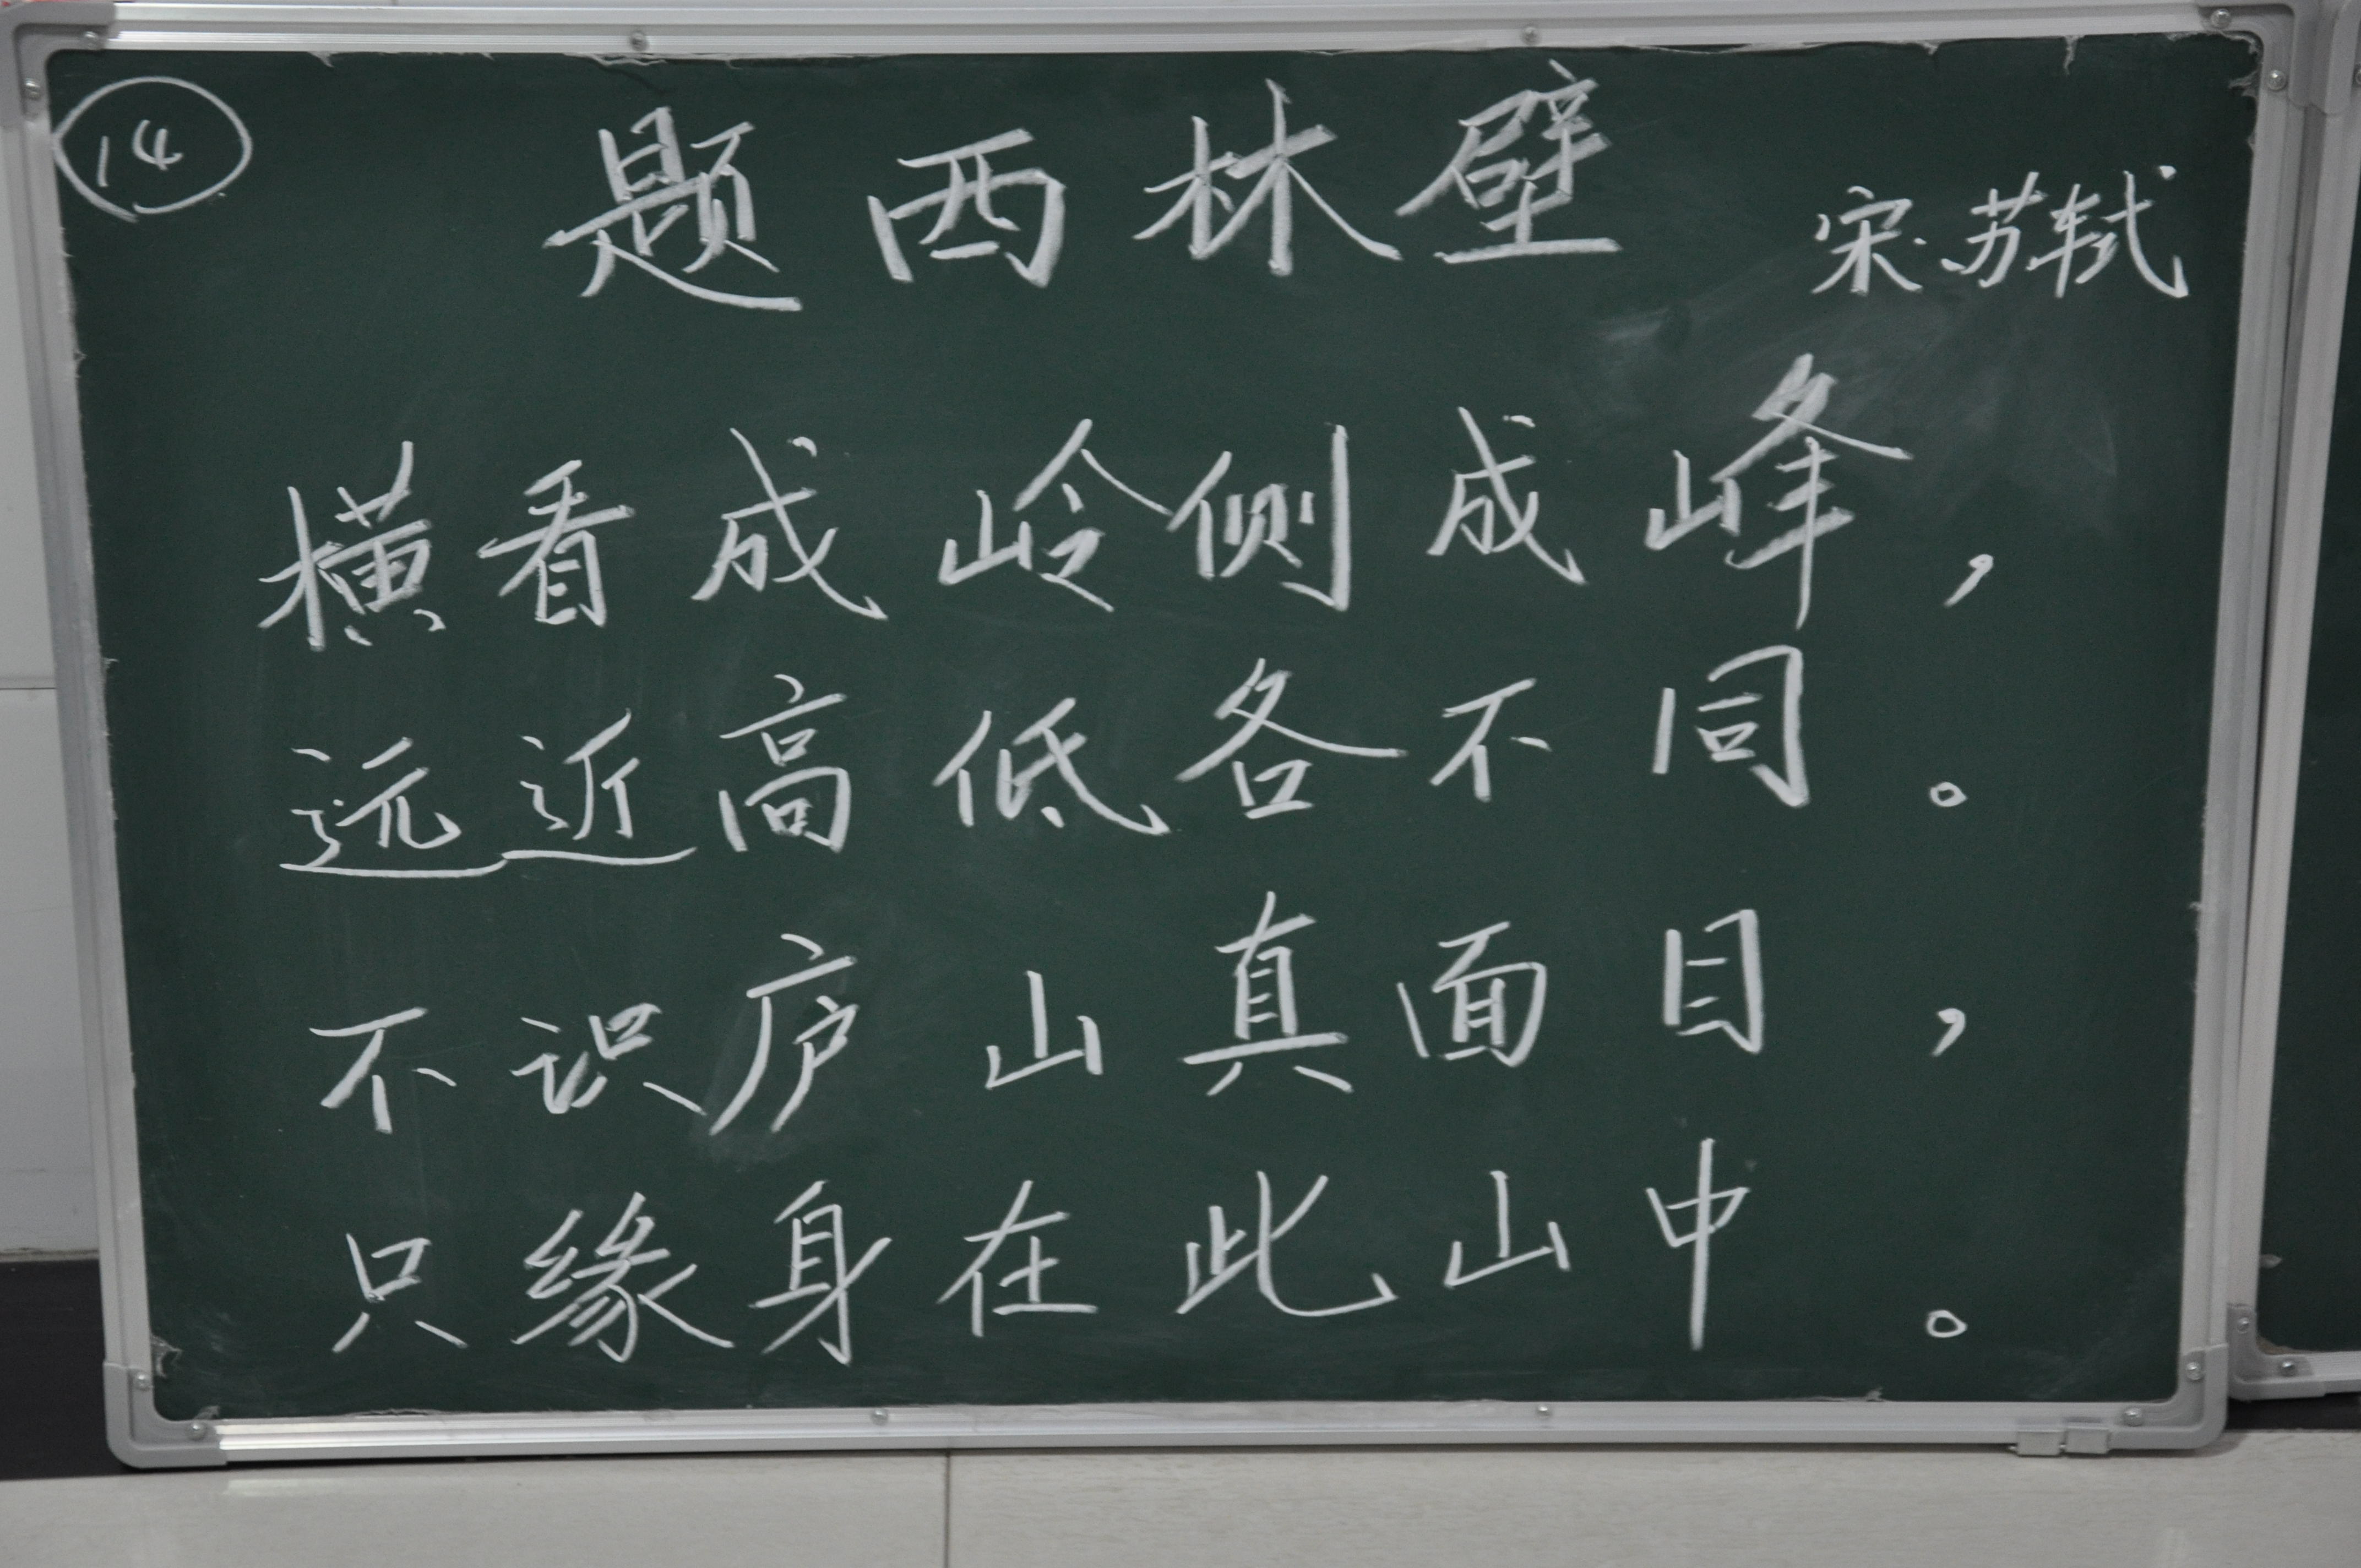 14
题西林壁
宋·苏轼
横看成岭侧成峰，
远近高低各不同。
不识庐山真面目，
只缘身在此山中。